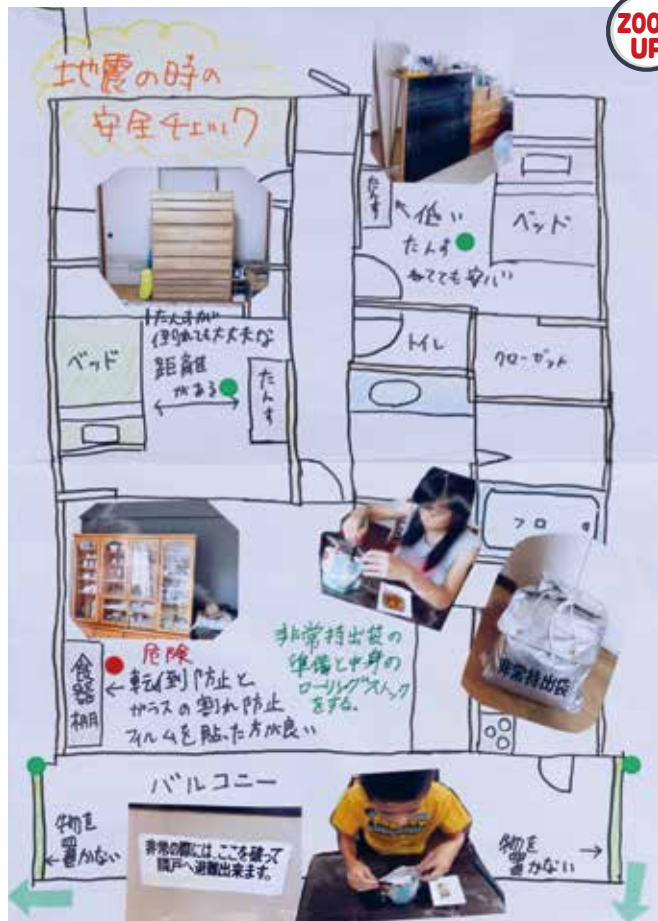 ZOOM
UP
地震の時の
安全チェック
たんす
←低い
たんす
ねてても安心
ベッド
たんすが
倒れても大丈夫な
距離
がある
ベッド
たんす
トイレ
クローゼット
フロ
危険
食器棚
←転倒防止と
ガラスの割れ防止
フィルムを貼った方が良い
非常持出袋の
準備と中身の
ローリングストック
をする。
非常持出袋
バルコニー
物を
置かない
非常の際には、ここを破って
隣戸へ避難出来ます。
物を
置かない